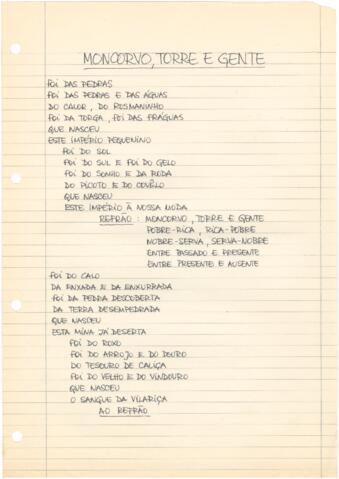 MONCORVO, TORRE E GENTE
FOI DAS PEDRAS
FOI DAS PEDRAS E DAS ÁGUAS
DO CALOR, DO ROSMANINHO
FOI DA TORGA, FOI DAS FRÁGUAS
QUE NASCEU
ESTE IMPÉRIO PEQUENINO
FOI DO SOL
FOI DO SUL E FOI DO GELO
FOI DO SONHO E DA RODA
DO PICOTO E DO
QUE NASCEU
ESTE IMPÉRIO À NOSSA MODA
REFRÃO: MONCORVO, TORRE E GENTE
POBRE-RICA, RICA-POBRE
NOBRE-SERVA, SERVA-NOBRE
ENTRE PASSADO E PRESENTE
ENTRE PRESENTE E AUSENTE
FOI DO CALO
DA ENXADA E DA ENXURRADA
FOI DA PEDRA DESCOBERTA
DA TERRA DESEMPEDRADA
QUE NASCEU
ESTA MINA JÁ DESERTA
FOI DO ROXO
FOI DO ARROJO E DO DOURO
DO TESOURO DE CALIÇA
FOI DO VELHO E DO VINDOURO
QUE NASCEU
O SANGUE DA VILARIÇA
AO REFRÃO